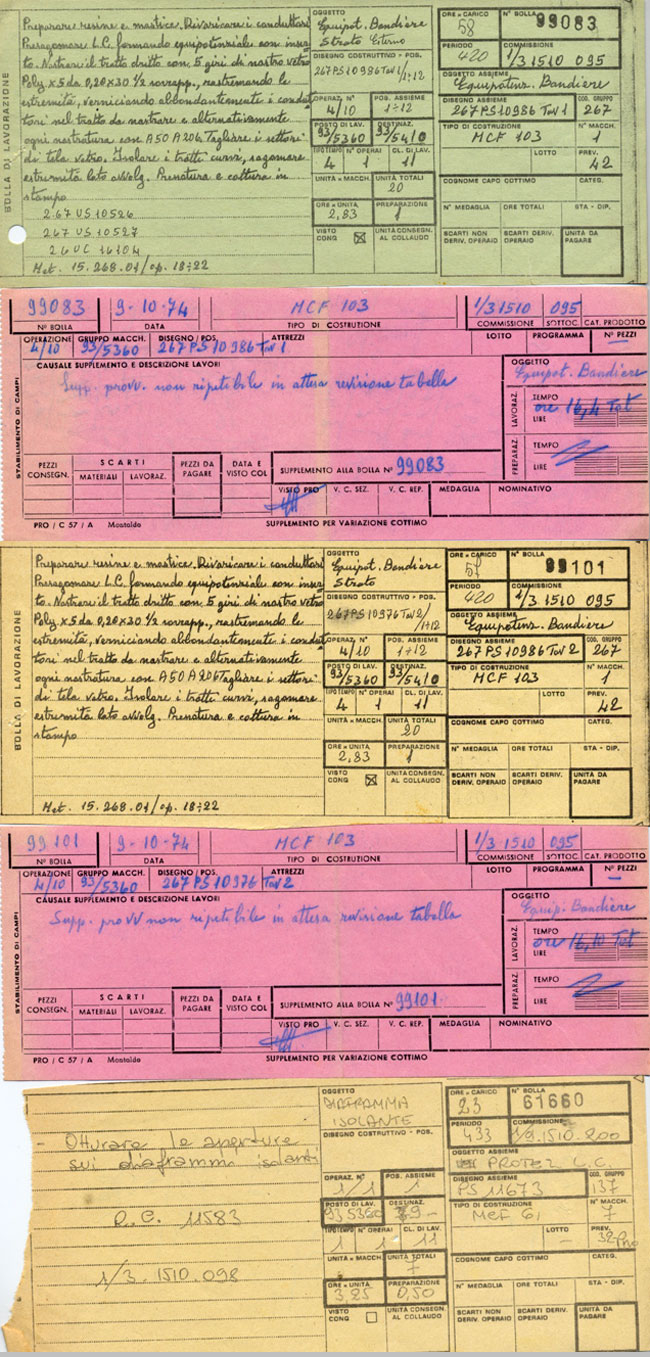 BOLLA DI LAVORAZIONE
Preparare resine e mastice. Divaricare i conduttori
Presagomare L.C. formando equipotenziale con inser
to. Nastrare il tratto dritto con 5 giri di nastro vetro
Poly x5 da 0,20x30 1/2 sovrapp., rastremando le
estremità, verniciando abbondantemente i condut
tori nel tratto da nastrare e alternativamente
ogni nastratura con A50 A206. Tagliare i settori
di tela vetro. Isolare i tratti curvi, sagomare
estremità lato avvolg. Prenatura e cottura in
stampo
267 US 10526
267 US 10527
26 UC 16104
Met. 15.268.01/op. 18÷22
OGGETTO
Equipot. Bandiere
Strato Esterno
DISEGNO COSTRUTTIVO - POS.
267 PS 10976 Tav 1/1÷12
OPERAZ. N° POS. ASSIEME
4/10 1÷12
POSTO DI LAV. DESTINAZ.
93/5360 93/5410
TIPO TEMPO N° OPERAI CL. DI LAV.
4 1 11
UNITÀ = MACCH. UNITÀ TOTALI
20
ORE = UNITÀ PREPARAZIONE
2,83 1
VISTO CONQ UNITÀ CONSEGN. AL COLLAUDO
ORE = CARICO N° BOLLA
58 99083
PERIODO COMMISSIONE
420 1/3 1510 095
OGGETTO ASSIEME
Equipotenz. Bandiere
DISEGNO ASSIEME COD. GRUPPO
267 PS 10986 Tav 1 267
TIPO DI COSTRUZIONE N° MACCH.
MCF 103 1
LOTTO PREV.
42
COGNOME CAPO COTTIMO CATEG.
N° MEDAGLIA ORE TOTALI STA - DIP.
SCARTI NON DERIV. OPERAIO SCARTI DERIV. OPERAIO UNITÀ DA PAGARE
99083 9-10-74 MCF 103 1/3 1510 095
N° BOLLA DATA TIPO DI COSTRUZIONE COMMISSIONE SOTTOC. CAT. PRODOTTO
OPERAZIONE GRUPPO MACCH. DISEGNO / POS. ATTREZZI LOTTO PROGRAMMA N° PEZZI
4/10 93/5360 267 PS 10986 Tav 1 —
STABILIMENTO DI CAMPI
CAUSALE SUPPLEMENTO E DESCRIZIONE LAVORI
Supp. provv. non ripetibile in attesa revisione tabella
OGGETTO
Equipot. Bandiere
LAVORAZ.
TEMPO
ore 16,4 Tot
LIRE
PREPARAZ.
TEMPO
LIRE
PEZZI CONSEGN. SCARTI MATERIALI LAVORAZ. PEZZI DA PAGARE DATA E VISTO COL
SUPPLEMENTO ALLA BOLLA N° 99083
VISTO PRO V. C. SEZ. V. C. REP. MEDAGLIA NOMINATIVO
PRO / C 57 / A Montaldo SUPPLEMENTO PER VARIAZIONE COTTIMO
BOLLA DI LAVORAZIONE
Preparare resine e mastice. Divaricare i conduttori
Presagomare L.C. formando equipotenziale con inser
to. Nastrare il tratto dritto con 5 giri di nastro vetro
Poly x5 da 0,20x30 1/2 sovrapp., rastremando le
estremità, verniciando abbondantemente i condut
tori nel tratto da nastrare e alternativamente
ogni nastratura con A50 A206 Tagliare i settori
di tela vetro. Isolare i tratti curvi, sagomare
estremità lato avvolg. Prenatura e cottura in
stampo
Met. 15.268.01/op. 18÷22
OGGETTO
Equipot. Bandiere
Strato
DISEGNO COSTRUTTIVO - POS.
267 PS 10976 Tav 2/1÷12
OPERAZ. N° POS. ASSIEME
4/10 1÷12
POSTO DI LAV. DESTINAZ.
93/5360 93/5410
TIPO TEMPO N° OPERAI CL. DI LAV.
4 1 11
UNITÀ = MACCH. UNITÀ TOTALI
20
ORE = UNITÀ PREPARAZIONE
2,83 1
VISTO CONQ UNITÀ CONSEGN. AL COLLAUDO
ORE = CARICO N° BOLLA
99101
PERIODO COMMISSIONE
420 1/3 1510 095
OGGETTO ASSIEME
Equipotenz. Bandiere
DISEGNO ASSIEME COD. GRUPPO
267 PS 10986 Tav 2 267
TIPO DI COSTRUZIONE N° MACCH.
MCF 103 1
LOTTO PREV.
42
COGNOME CAPO COTTIMO CATEG.
N° MEDAGLIA ORE TOTALI STA - DIP.
SCARTI NON DERIV. OPERAIO SCARTI DERIV. OPERAIO UNITÀ DA PAGARE
99101 9-10-74 MCF 103 1/3 1510 095
N° BOLLA DATA TIPO DI COSTRUZIONE COMMISSIONE SOTTOC. CAT. PRODOTTO
OPERAZIONE GRUPPO MACCH. DISEGNO / POS. ATTREZZI LOTTO PROGRAMMA N° PEZZI
4/10 93/5360 267 PS 10976 Tav 2 —
STABILIMENTO DI CAMPI
CAUSALE SUPPLEMENTO E DESCRIZIONE LAVORI
Supp. provv non ripetibile in attesa revisione tabella
OGGETTO
Equip. Bandiere
LAVORAZ.
TEMPO
ore 16,10 Tot
LIRE
PREPARAZ.
TEMPO
LIRE
PEZZI CONSEGN. SCARTI MATERIALI LAVORAZ. PEZZI DA PAGARE DATA E VISTO COL
SUPPLEMENTO ALLA BOLLA N° 99101
VISTO PRO V. C. SEZ. V. C. REP. MEDAGLIA NOMINATIVO
PRO / C 57 / A Montaldo SUPPLEMENTO PER VARIAZIONE COTTIMO
- Otturare le aperture
sui diaframmi isolanti
R.C. 11583
1/3.1510.098
OGGETTO
DIAFRAMMA
ISOLANTE
DISEGNO COSTRUTTIVO - POS.
OPERAZ. N° POS. ASSIEME
1/1 1
POSTO DI LAV. DESTINAZ.
93 5360
TIPO TEMPO N° OPERAI CL. DI LAV.
1 1 11
UNITÀ = MACCH. UNITÀ TOTALI
7
ORE = UNITÀ PREPARAZIONE
3,25 0,50
VISTO CONQ UNITÀ CONSEGN. AL COLLAUDO
ORE = CARICO N° BOLLA
23 61660
PERIODO COMMISSIONE
433 1/9.1510.200
OGGETTO ASSIEME
PROTEZ C.C.
DISEGNO ASSIEME COD. GRUPPO
PS 11673 137
TIPO DI COSTRUZIONE N° MACCH.
MCF 61 7
LOTTO PREV.
COGNOME CAPO COTTIMO CATEG.
N° MEDAGLIA ORE TOTALI STA - DIP.
SCARTI NON DERIV. OPERAIO SCARTI DERIV. OPERAIO UNITÀ DA PAGARE